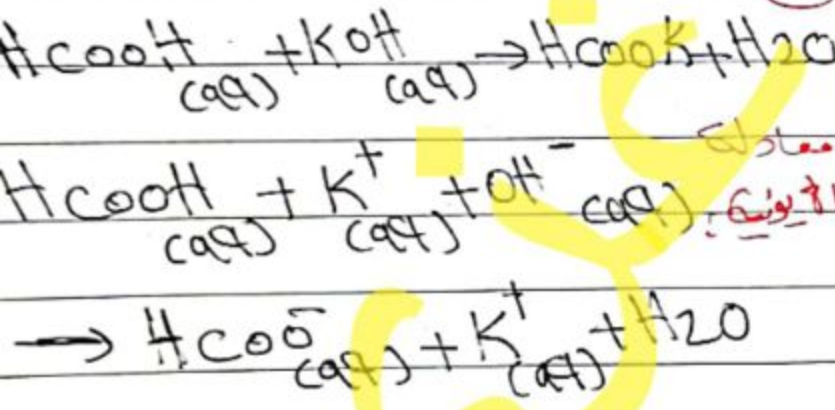 HCOOH(aq) + KOH(aq) → HCOOK + H2O
HCOOH(aq) + K+(aq) + OH-(aq)
معادلة
→ HCOO-(aq) + K+(aq) + H2O